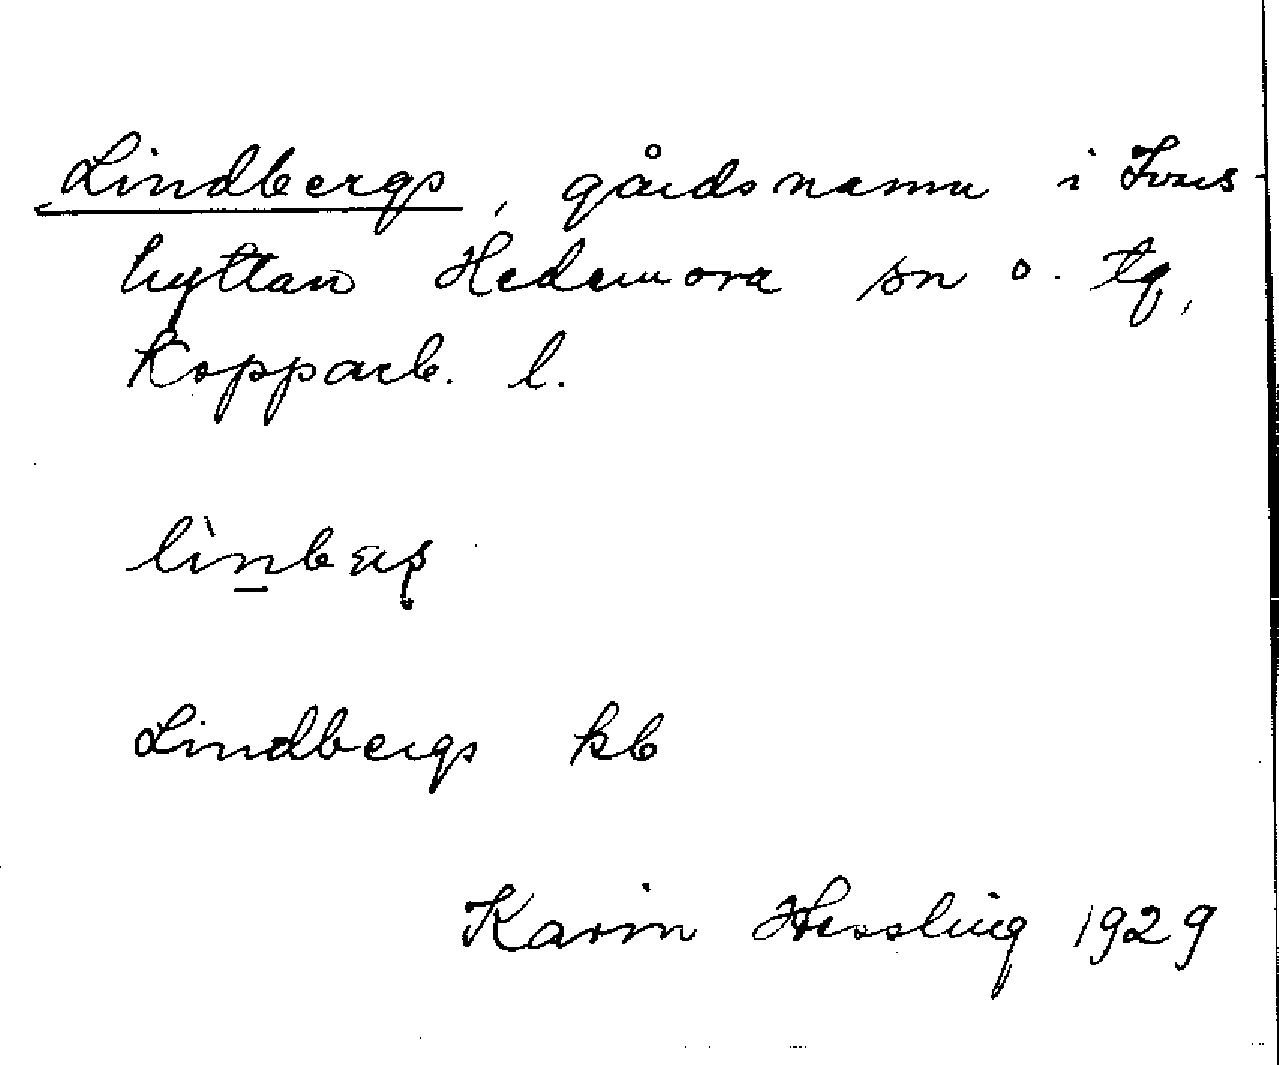 Lindbergs, gårdsnamn i Ivars-
hyttan Hedemora sn o. tg,
Kopparb. l.
Lindbergs kb
Karin Hessling 1929